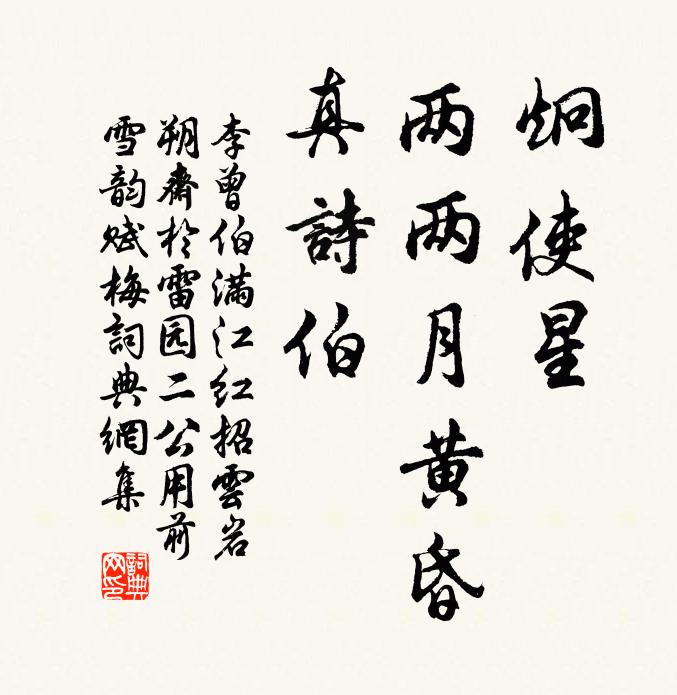 炯使星
两两月黄昏
真詩伯
李曾伯满江红招雲岩
朔齋於雷园二公用前
雪韵赋梅詞典網集
詞典网印